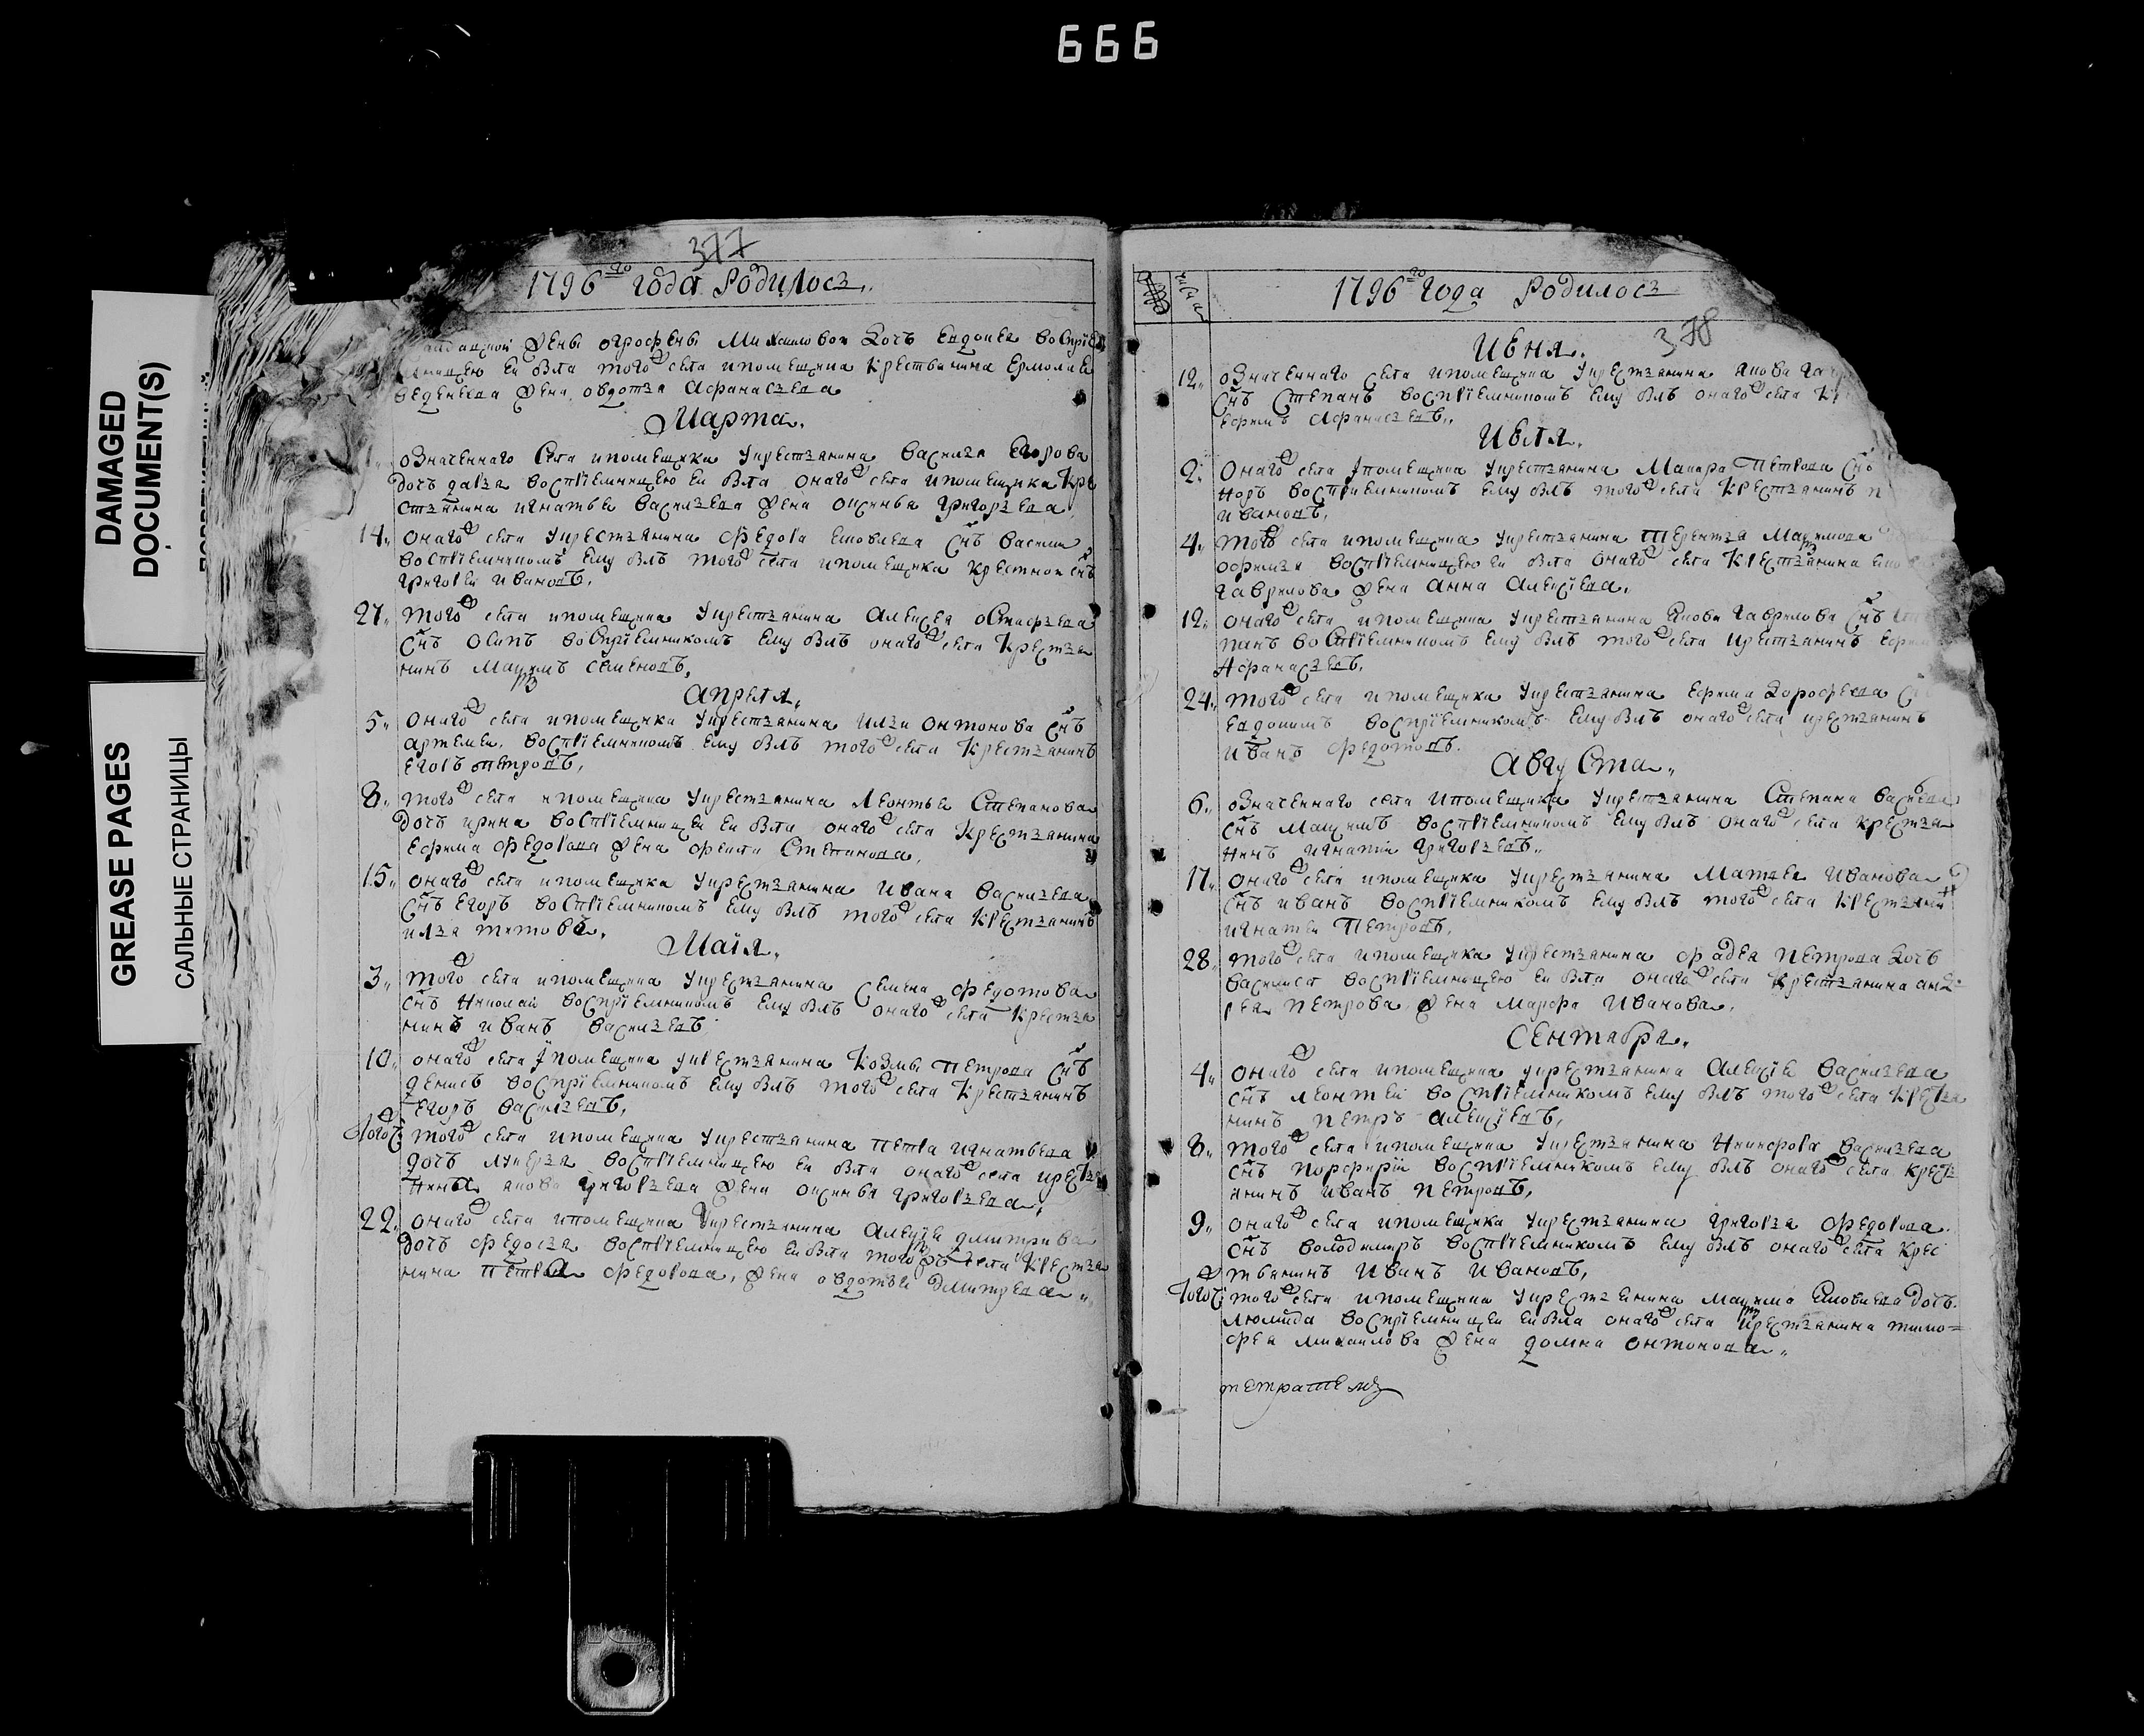 666
DAMAGED
DOCUMENT(S)
GREASE PAGES
САЛЬНЫЕ СТРАНИЦЫ
377
1796го года Родилось
жены огрофены Михаиловой дочь Евдокея воспрїем
ницею ей была того села и помещика крестьянина Ермолая
жена, овдотья Афанасьева
Марта
означенного села и помещика у крестьянина василья Егорова
дочь дарья воспрїемницею ей была оного села и помещика кре
стьянина игнатья васильева жена оксинья григорьева
14 оного села у крестьянина Федора сынъ василей
воспрїемникомъ ему былъ того села и помещика
григорей ивановъ,
27 того села и помещика у крестьянина Алексея остафьева
сынъ осипъ воспрїемникомъ ему былъ оного села крестья
нинъ максимъ семеновъ,
апреля,
5 оного села и помещика у крестьянина ильи онтонова сынъ
артемей, воспрїемникомъ ему былъ того села крестьянинъ
егоръ петровъ,
8 того села и помещика у крестьянина леонтья степанова
дочь ирина воспрїемницей ей была оного села крестьянина
ефима федорова жена фекла Степанова,
15 оного села и помещика у крестьянина ивана васильева
сынъ егоръ воспрїемникомъ ему былъ того села крестьянинъ
илья титовъ,
Маїя,
3 того села и помещика у крестьянина семена федотова
сынъ николай воспрїемникомъ ему былъ оного села крестья
нинъ иванъ васильевъ
10 оного села и помещика у крестьянина козмы петрова сынъ
денисъ воспрїемникомъ ему былъ того села крестьянинъ
егоръ васильевъ,
того ж того села и помещика у крестьянина петра игнатьева
дочь лукерья воспрїемницею ей была оного села крестья
нина якова григорьева жена оксинья григорьева,
22 оного села и помещика у крестьянина алексея дмитрива
дочь федосья воспрїемницею ей была того села крестья
нина петра федорова, жена овдотья дмитрева
1796го года Родилось
378
Июня
12 означенного села и помещика у крестьянина якова
сынъ степанъ воспрїемникомъ ему былъ оного села
ефимъ Афанасьевъ,
Июля,
2 оного села и помещика у крестьянина макара петрова сынъ
воспрїемникомъ ему былъ того села крестьянинъ
ивановъ,
4 того села и помещика у крестьянина терентья максимова
воспрїемницею ей была оного села крестьянина
гаврилова жена анна алексїева,
12 оного села и помещика у крестьянина якова гаврилова сынъ
панъ воспрїемникомъ ему былъ того села крестьянинъ
Афанасьевъ,
24 того села и помещика у крестьянина ефима дорофеева
евдокимъ воспрїемникомъ ему былъ оного села крестьянинъ
иванъ федотовъ.
Августа,
6 означенного села и помещика у крестьянина степана
сынъ максимъ воспрїемникомъ ему былъ оного села крестья
нинъ игнатїи григорьевъ,
17 оного села и помещика у крестьянина матвея иванова
сынъ иванъ воспрїемникомъ ему былъ того села крестьянин
игнатей петровъ,
28 того села и помещика у крестьянина фадея петрова дочь
василиса воспрїемницею ей была оного села крестьянина анд
рея петрова жена марфа иванова,
Сентября,
4 оного села и помещика у крестьянина алексїя васильева
сынъ леонтей воспрїемникомъ ему былъ того села крестья
нинъ петръ алексїевъ,
8 того села и помещика у крестьянина никифора васильева
сынъ порфирїи воспрїемникомъ ему былъ оного села кресть
янинъ иванъ петровъ,
9 оного села и помещика у крестьянина григорья федорова
сынъ володимиръ воспрїемникомъ ему былъ оного села крес
тьянинъ иванъ ивановъ,
того ж того села и помещика у крестьянина максима дочь
воспрїемницей ей была оного села крестьянина тимо=
фея михаилова жена домна онтонова,